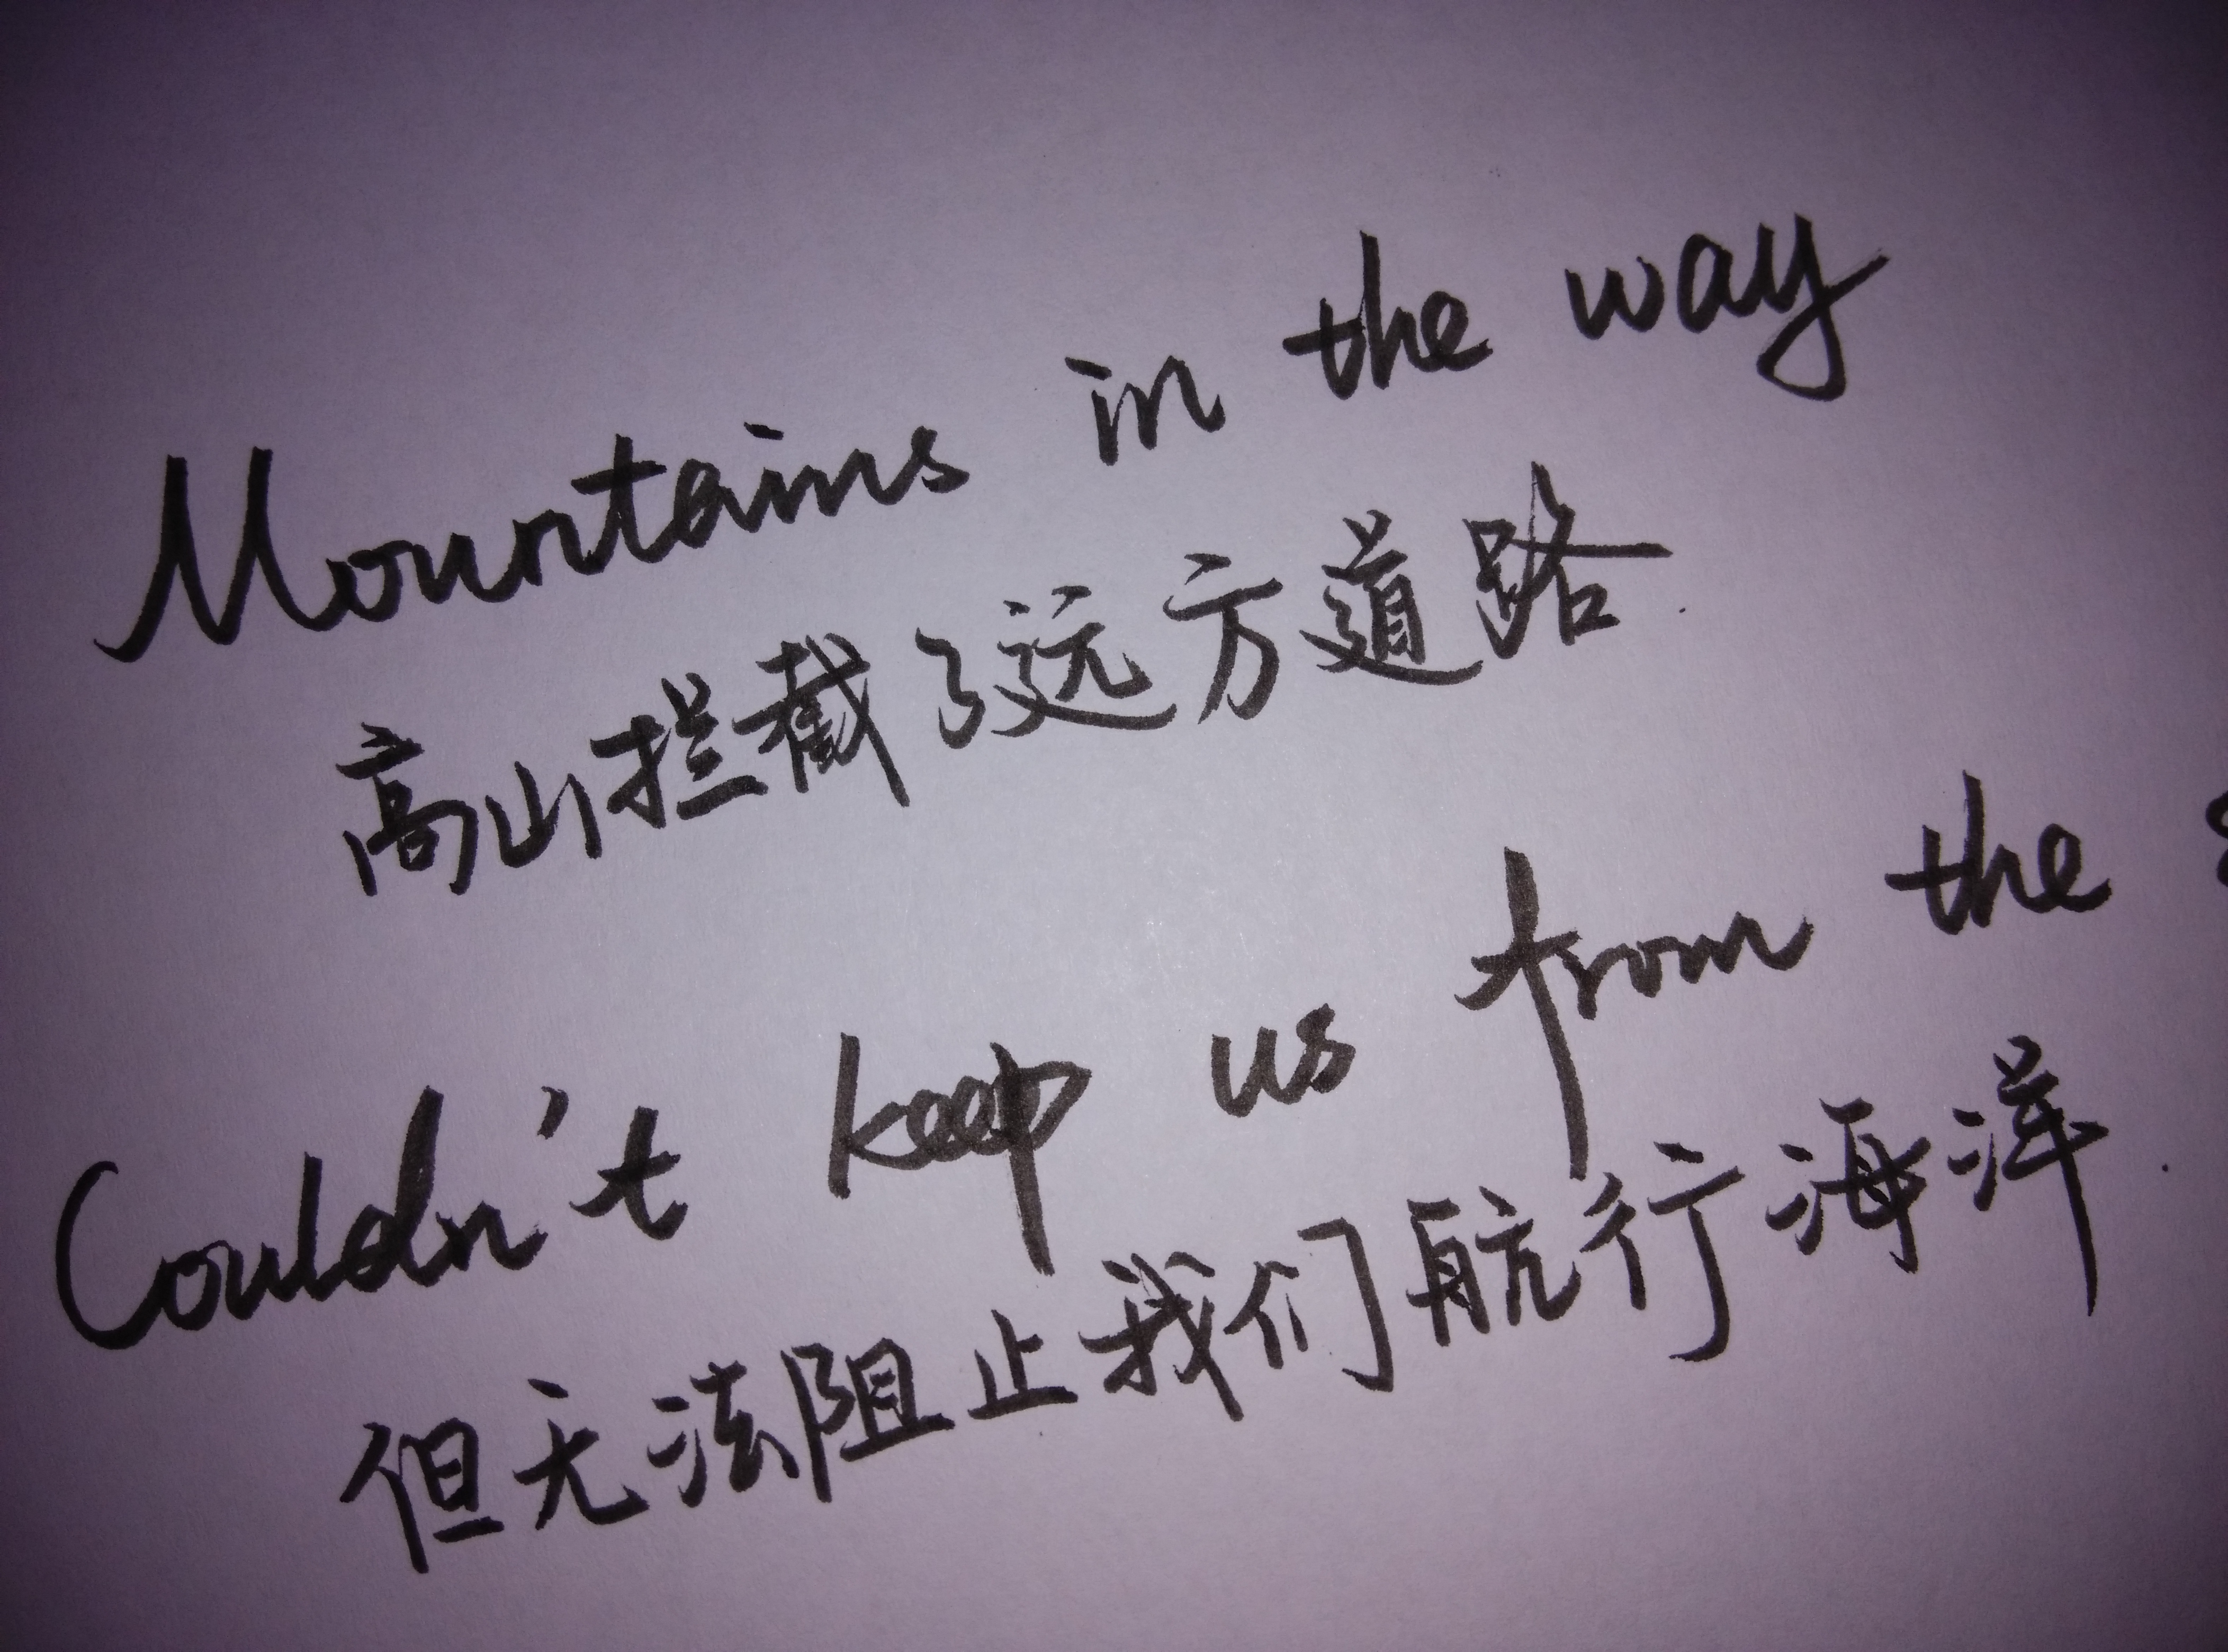 Mountains in the way
高山拦截了远方道路
Couldn't keep us from the
但无法阻止我们航行海洋